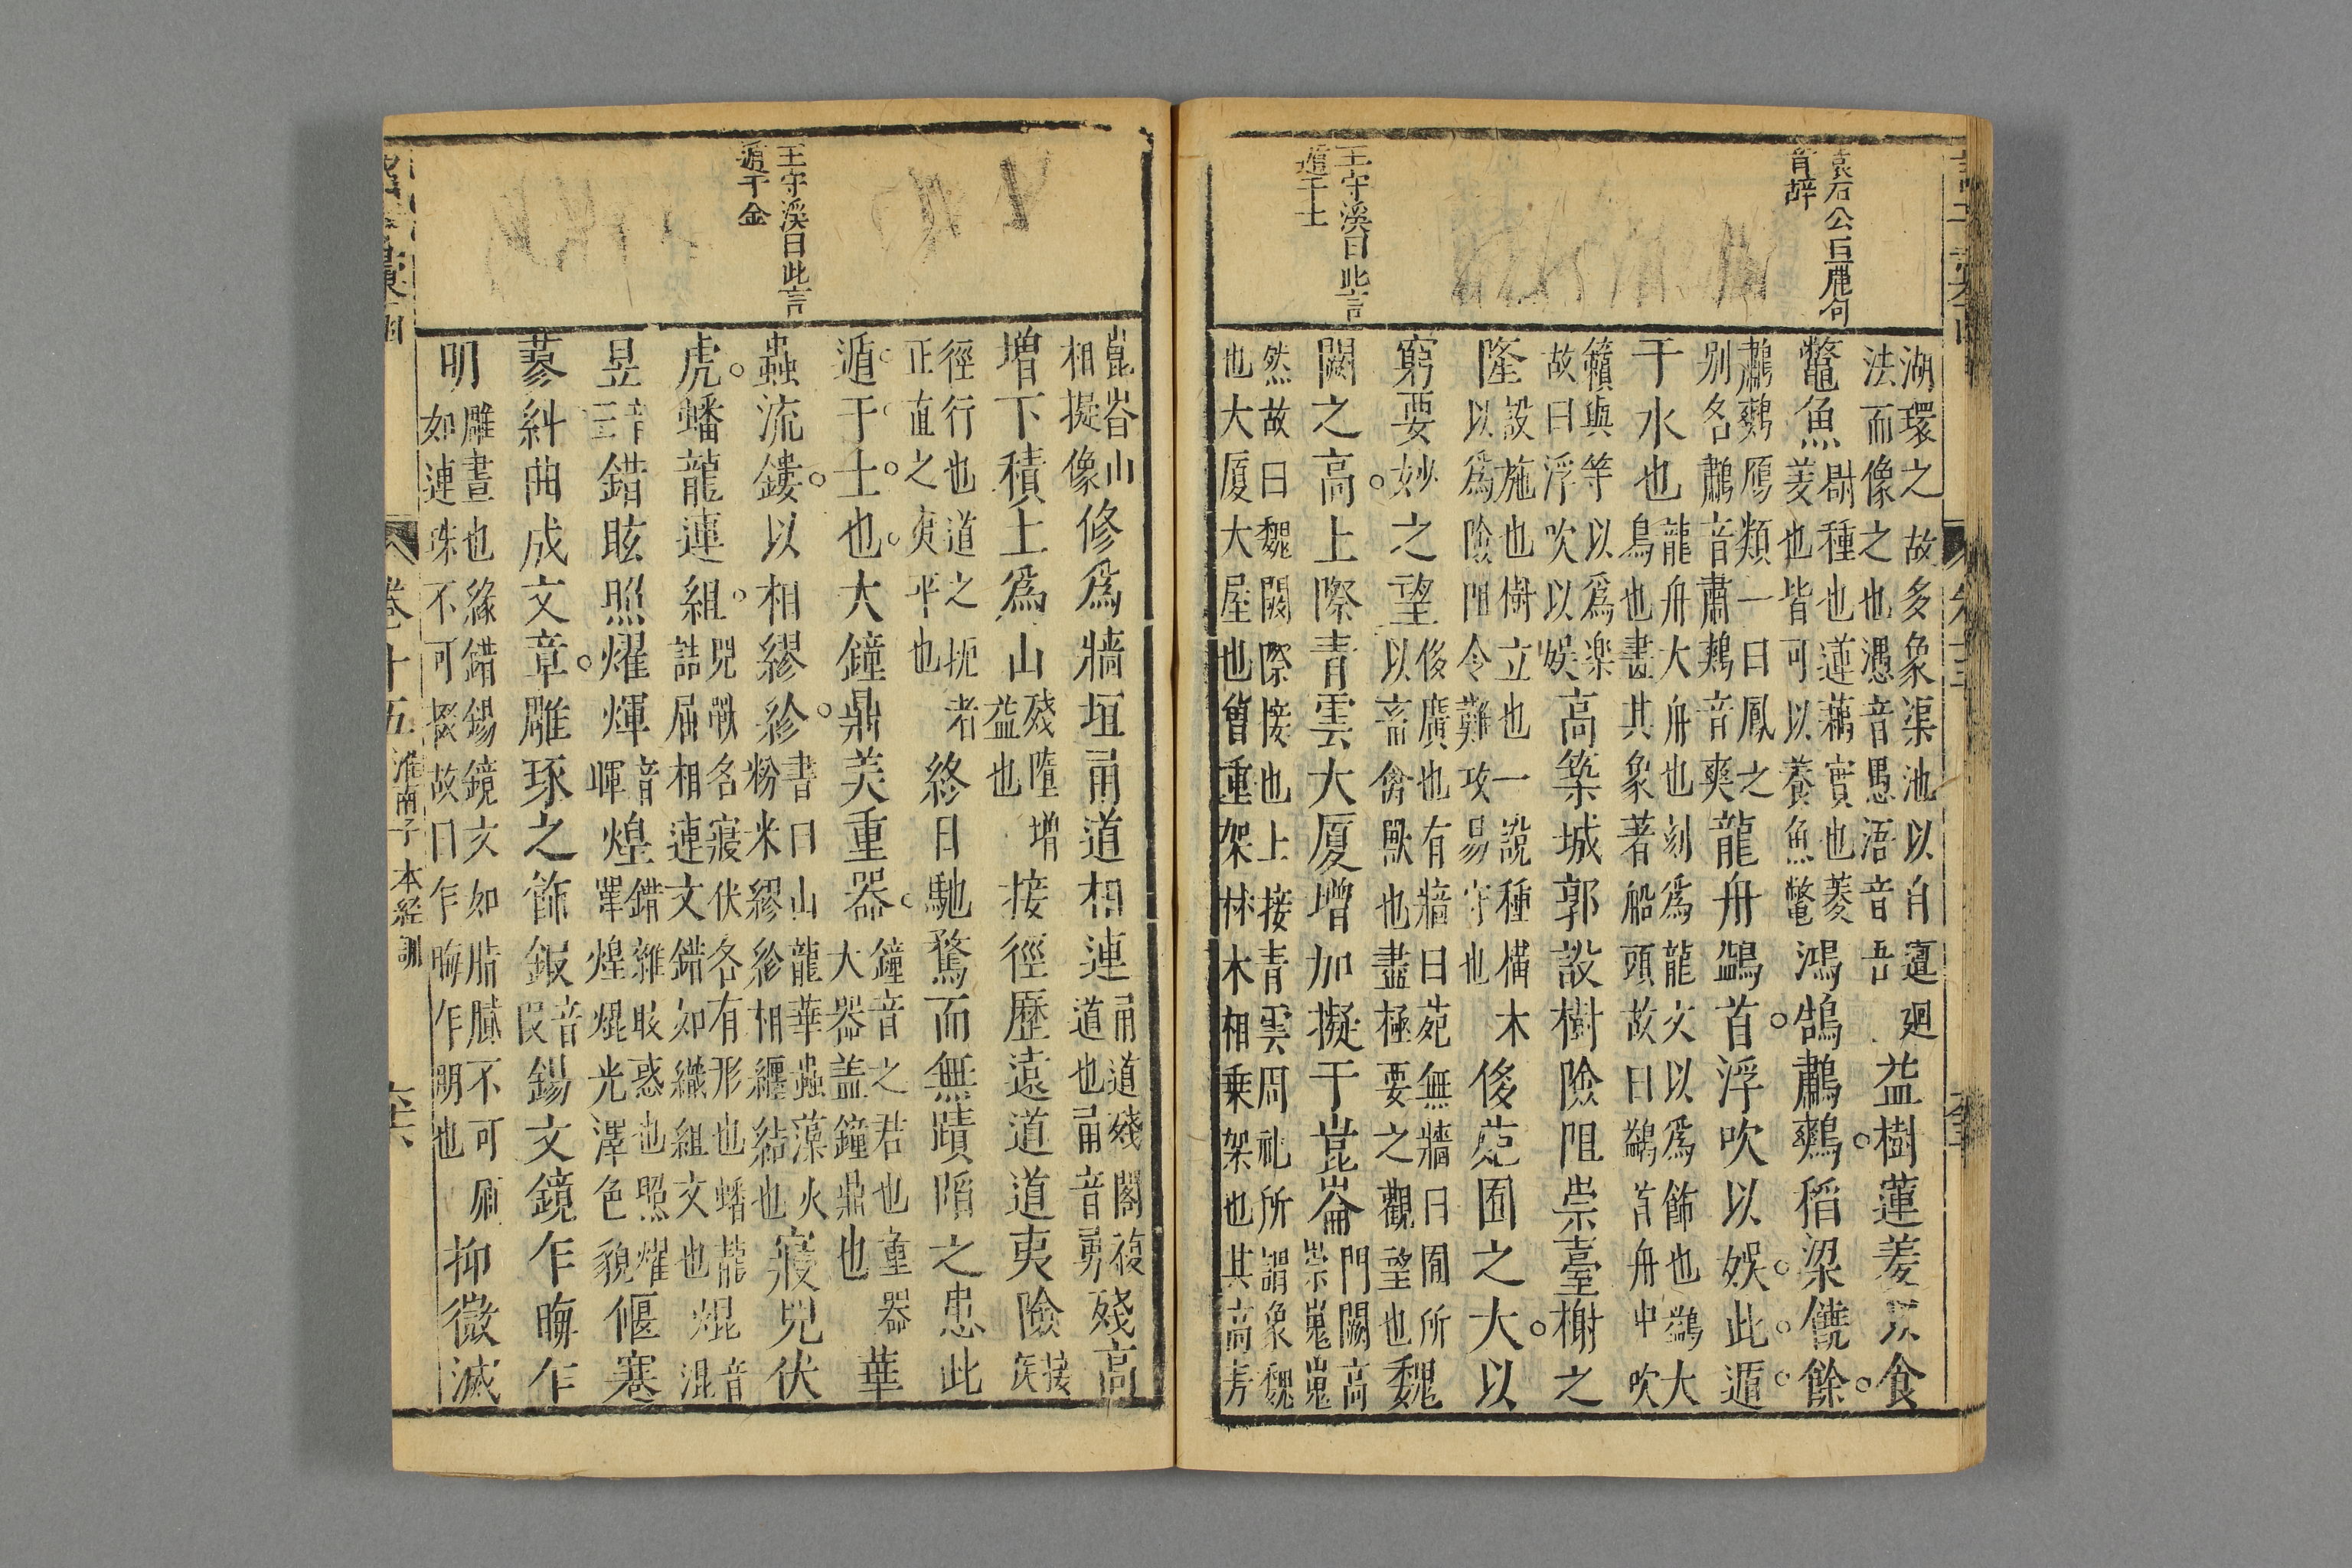 袁石公曰麗句
奇辭
王守溪曰此言
遁于土
湖環之故多象渠池以自遶廻
法而像之也澞音愚浯音吾
益樹蓮菱以食
鼈魚
㔉種也蓮藕實也菱
菱也皆可以養魚鼈
鴻鵠鷫鷞稻梁饒餘
鷫鷞鴈類一曰鳳之
别名鷫音肅鷞音爽
龍舟鷁首浮吹以娛此遁
于水也
龍舟大舟也刻爲龍文以爲飾也鷁大
鳥也畵其象著船頭故曰鷁首舟中吹
籟與竽以爲樂
故曰浮吹以娛
高築城郭設樹險阻崇臺榭之
隆
設施也樹立也一說種構木
以爲險阻令難攻易守也
侈苑囿之大以
窮要妙之望
侈廣也有墻曰苑無牆曰囿所
以畜禽獸也盡極要之觀望也
魏
闕之高上際青雲大厦增加擬于崑崙
門闕高
崇嵬嵬
然故曰魏闕際接也上接青雲周礼所謂象魏
也大厦大屋也曾重架林木相乘架也其高芳
崑崙山
相擬像
修爲牆垣甬道相連
甬道殘閣複
道也甬音勇
殘高
增下積土爲山
殘墮增
益也
接徑歷遠道道夷險
接
疾
徑行也道之扼者
正直之夷平也
終日馳騖而無蹟陷之患此
遁于土也大鐘鼎美重器
鐘音之君也重器
大器盖鐘鼎也
華
蟲流鏤以相繆紾
書曰山龍華蟲藻火
粉米繆紾相纏結也
寢兕伏
虎蟠龍連組
兕獸名寢伏各有形也蟠龍
詰屈相連文錯如織組文也
焜
音
混
昱
音
三
錯眩照燿輝
音
暉
煌
錯雜眼惑也照燿
罼煌焜光澤色貌
偃蹇
蓼糾曲成文章雕琢之飾鍜
音
叚
錫文鏡乍晦乍
明
雕畫也緣錯錫鏡文如脂膩不可刷
如連珠不可掇故曰乍晦乍明也
抑微滅
王守溪曰此言
遁于金
卷十五
淮南子
本經訓